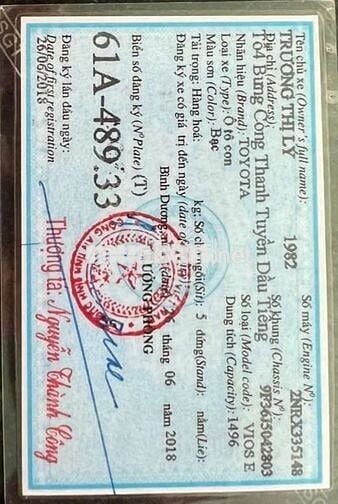 Tên chủ xe (Owner's full name): Số máy (Engine Nº):
TRƯƠNG THỊ LÝ 1982 2NRX335148
Địa chỉ (Address): Số khung (Chassis Nº):
Tổ4 Bưng Còng Thanh Tuyền Dầu Tiếng 9F3615042803
Nhãn hiệu (Brand): TOYOTA Số loại (Model code): VIOS E
Loại xe (Type): Ô tô con Dung tích (Capacity): 1496
Màu sơn (Color): Bạc
Tải trọng: Hàng hoá: kg; Số chỗ ngồi(Sit): 5 đứng(Stand): nằm(Lie):
Đăng ký xe có giá trị đến ngày (date of
Bình Dương, (date) tháng 06 năm 2018
Biển số đăng ký (NºPlate) (T)
61A-489.33
PHÒNG
Đăng ký lần đầu ngày:
Date of first registration
26/06/2018
Thượng tá: Nguyễn Thành Công